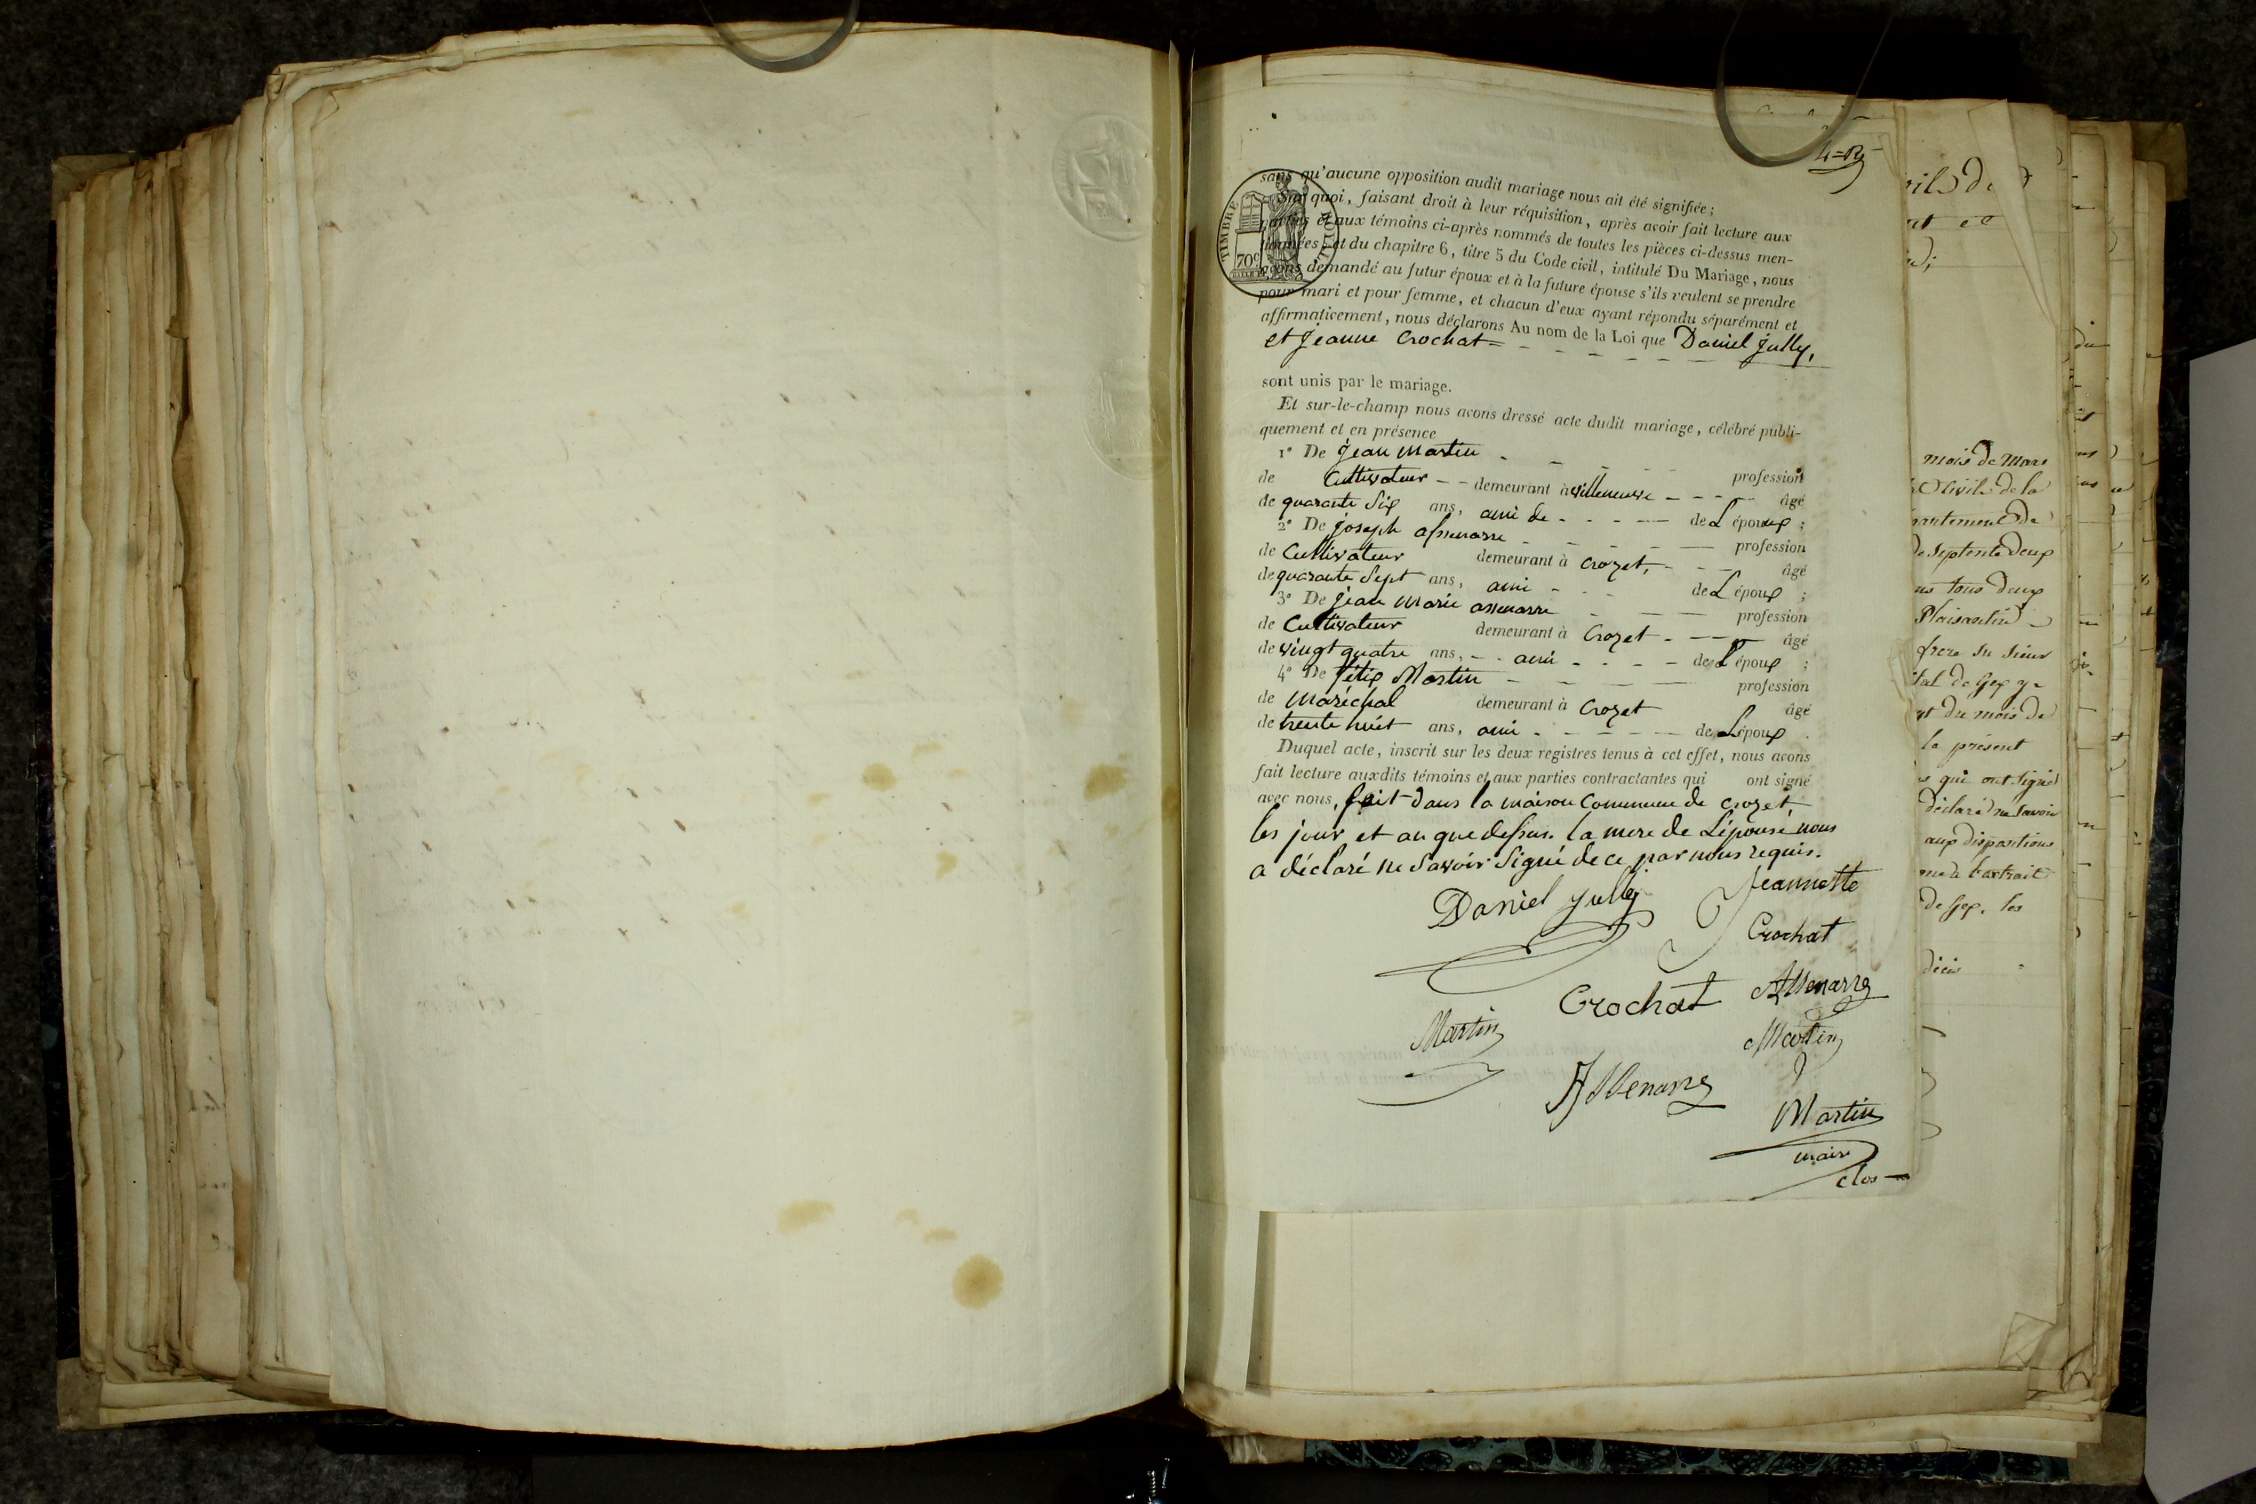 4=
sans qu'aucune opposition audit mariage nous ait été signifiée;
Sur quoi, faisant droit à leur réquisition, après avoir fait lecture aux
parties et aux témoins ci-après nommés de toutes les pièces ci-dessus men-
tionnées, et du chapitre 6, titre 5 du Code civil, intitulé Du Mariage, nous
avons demandé au futur époux et à la future épouse s'ils veulent se prendre
pour mari et pour femme, et chacun d'eux ayant répondu séparément et
affirmativement, nous déclarons Au nom de la Loi que Daniel Jully,
et Jeanne Crochat
TIMBRE ROYAL
70c
sont unis par le mariage.
Et sur-le-champ nous avons dressé acte dudit mariage, célébré publi-
quement et en présence
1° De Jean Martin profession
de Cultivateur demeurant à villeneuve âgé
de quarante Six ans, ami de de L époux ;
2° De joseph assenarre profession
de Cultivateur demeurant à crozet, âgé
de quarante Sept ans, ami de L époux ;
3° De jean Marie assenarre profession
de Cultivateur demeurant à Crozet âgé
de vingt quatre ans, ami de L époux ;
4° De félix Martin profession
de Maréchal demeurant à Crozet âgé
de trente huit ans, ami de L époux .
Duquel acte, inscrit sur les deux registres tenus à cet effet, nous avons
fait lecture auxdits témoins et aux parties contractantes qui ont signé
avec nous, fait dans la maison Commune de crozet,
les jour et an que dessus. la mere de L'épouse nous
a déclaré ne Savoir Signé de ce par nous requis.
Daniel Jully Jeannette
Crochat
Crochat Assenarre
Martin Martin
Assenarre
Martin
maire
clos
mois de Mars
Civile de la
partement de
de Septente deux
ns tous deux
Plaisantin
frere du sieur
tal de Gex
du mois de
le présent
qui ont Signé
déclaré ne Savoir
aux dispositions
l'extrait
de Gex, les